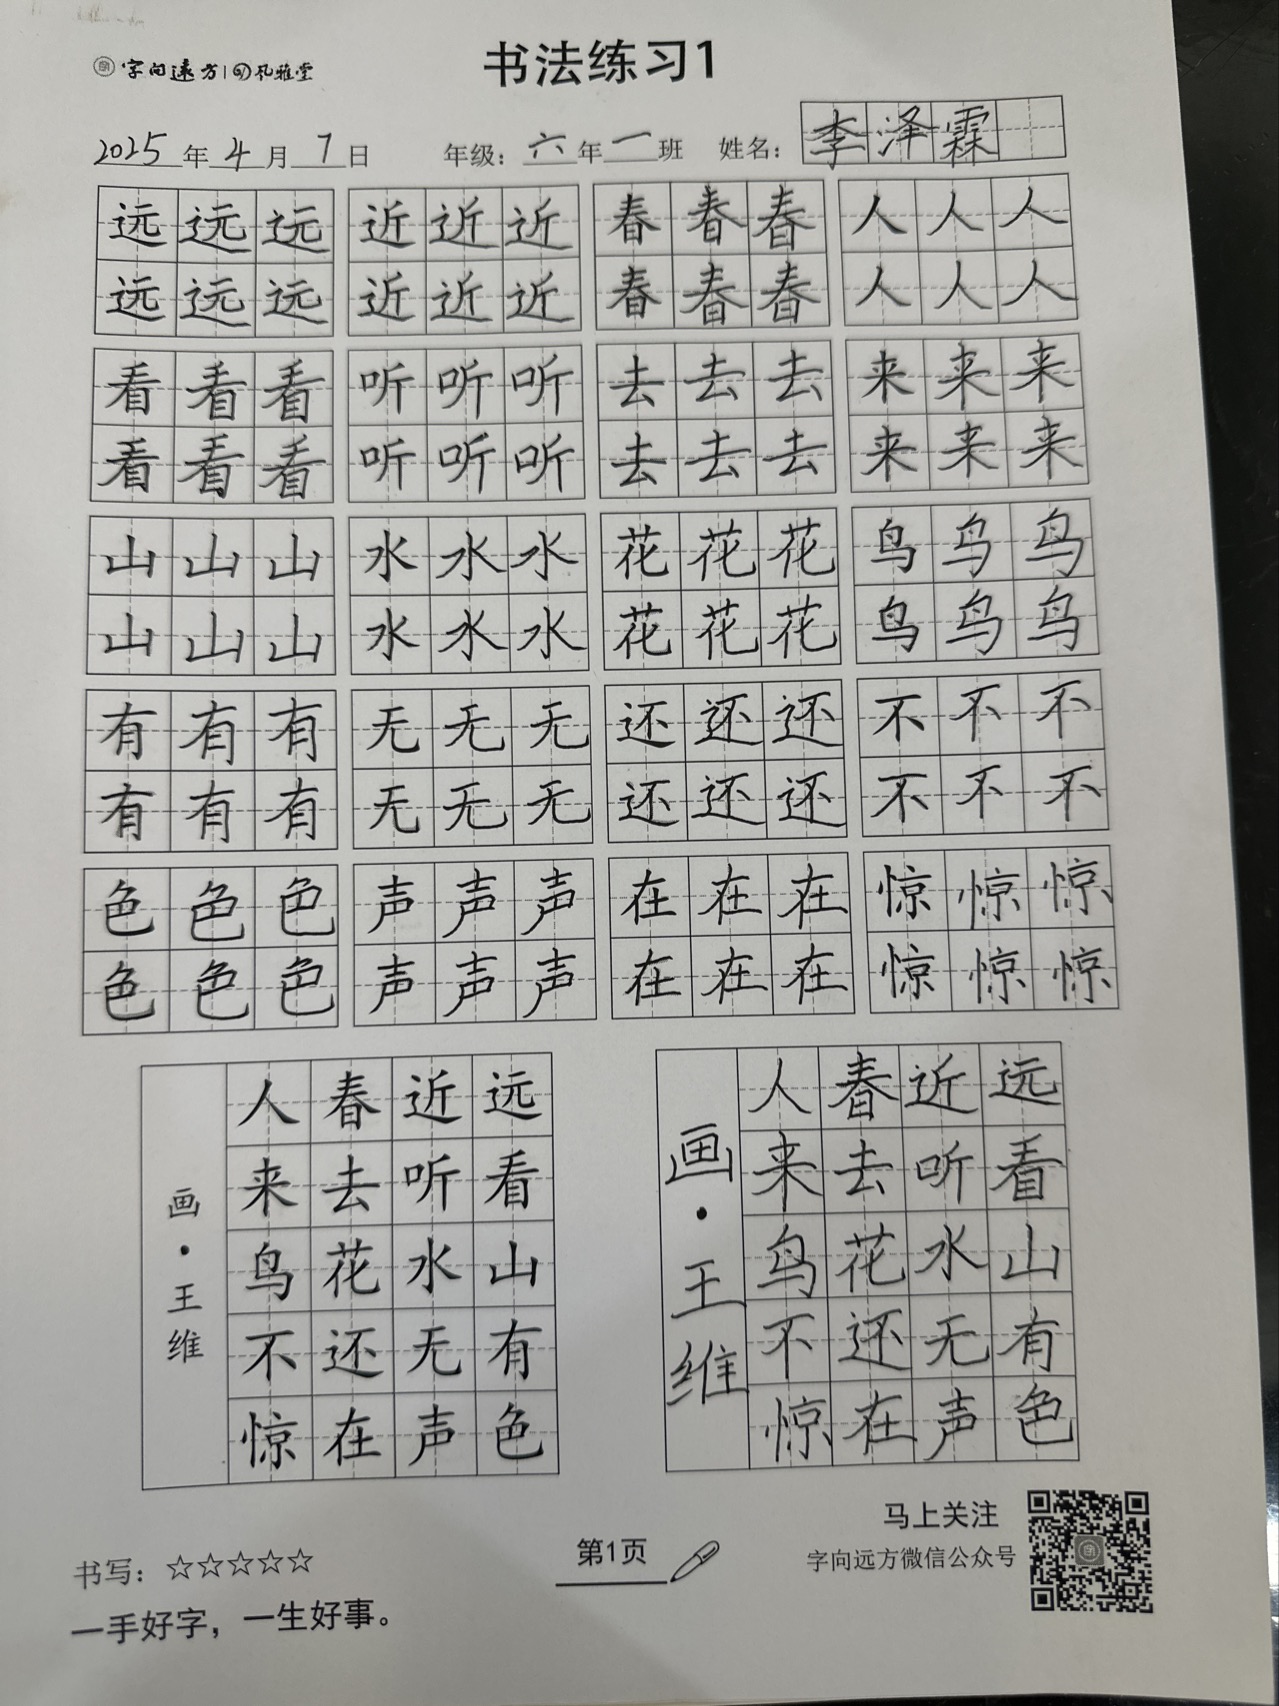 书法练习1
字向远方 | 孔雅堂
2025年4月7日 年级：六年一班 姓名：李泽霖
远远远 近近近 春春春 人人人
远远远 近近近 春春春 人人人
看看看 听听听 去去去 来来来
看看看 听听听 去去去 来来来
山山山 水水水 花花花 鸟鸟鸟
山山山 水水水 花花花 鸟鸟鸟
有有有 无无无 还还还 不不不
有有有 无无无 还还还 不不不
色色色 声声声 在在在 惊惊惊
色色色 声声声 在在在 惊惊惊
远看山有色
近听水无声
春去花还在
人来鸟不惊
画·王维
远看山有色
近听水无声
春去花还在
人来鸟不惊
画·王维
书写：☆☆☆☆☆
一手好字，一生好事。
第1页
马上关注
字向远方微信公众号